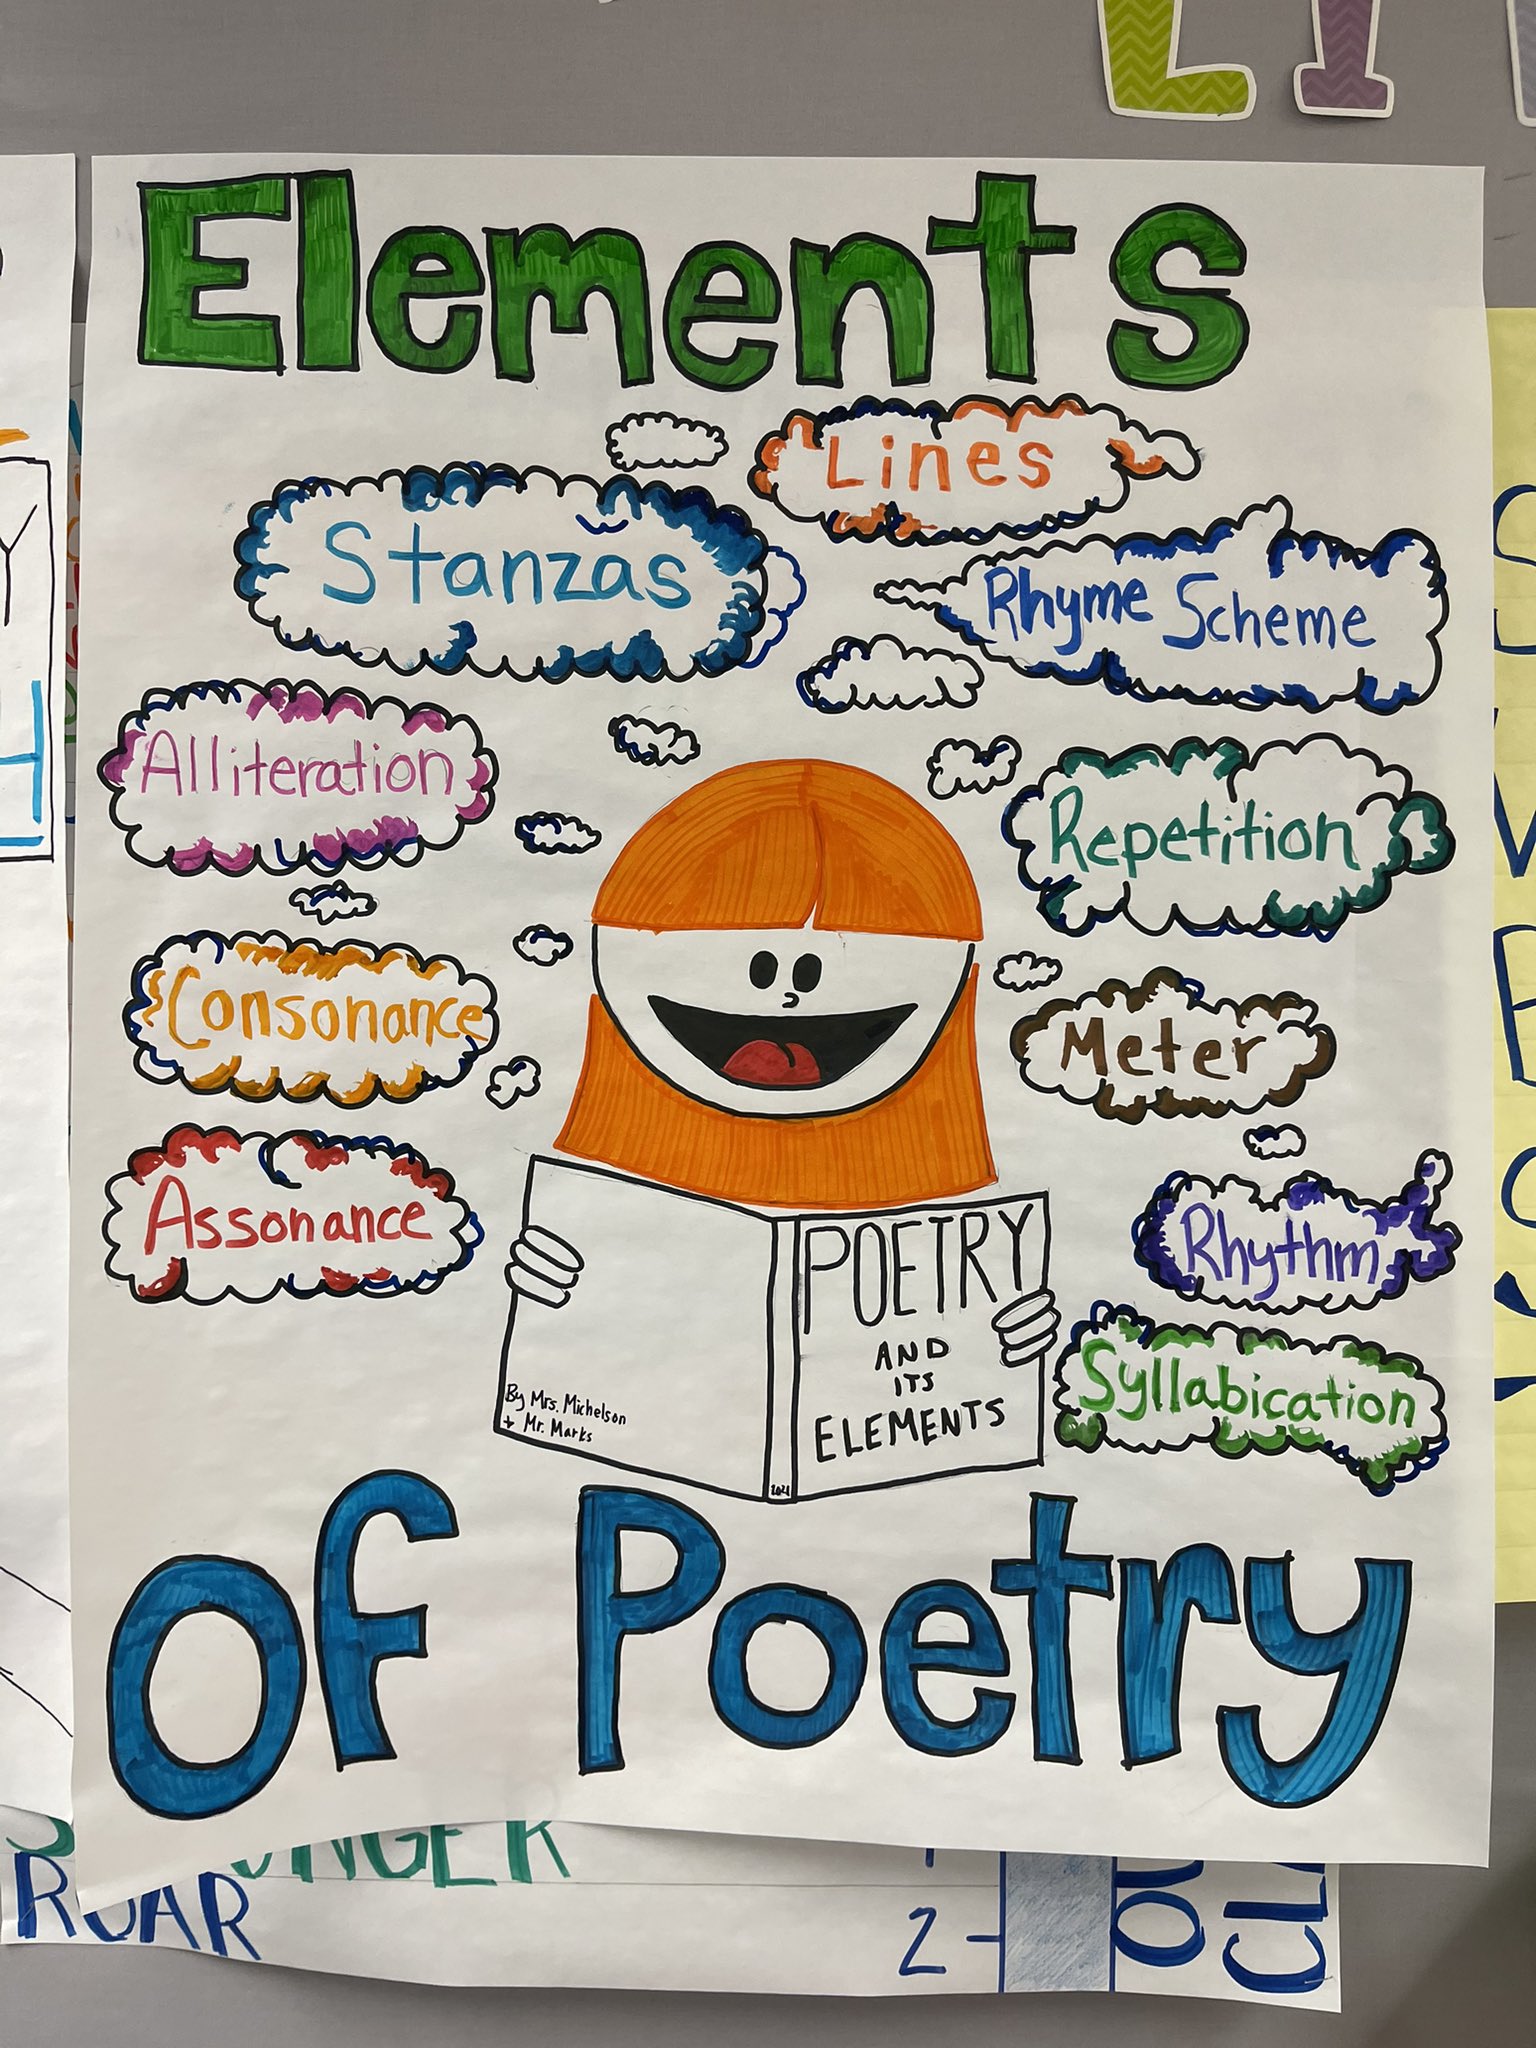 LI
Elements
Lines
Stanzas
Rhyme Scheme
Alliteration
Repetition
Consonance
Meter
Assonance
Rhythm
Syllabication
POETRY
AND
ITS
ELEMENTS
By Mrs. Michelson
+ Mr. Marks
2021
Of Poetry
ROAR
2-